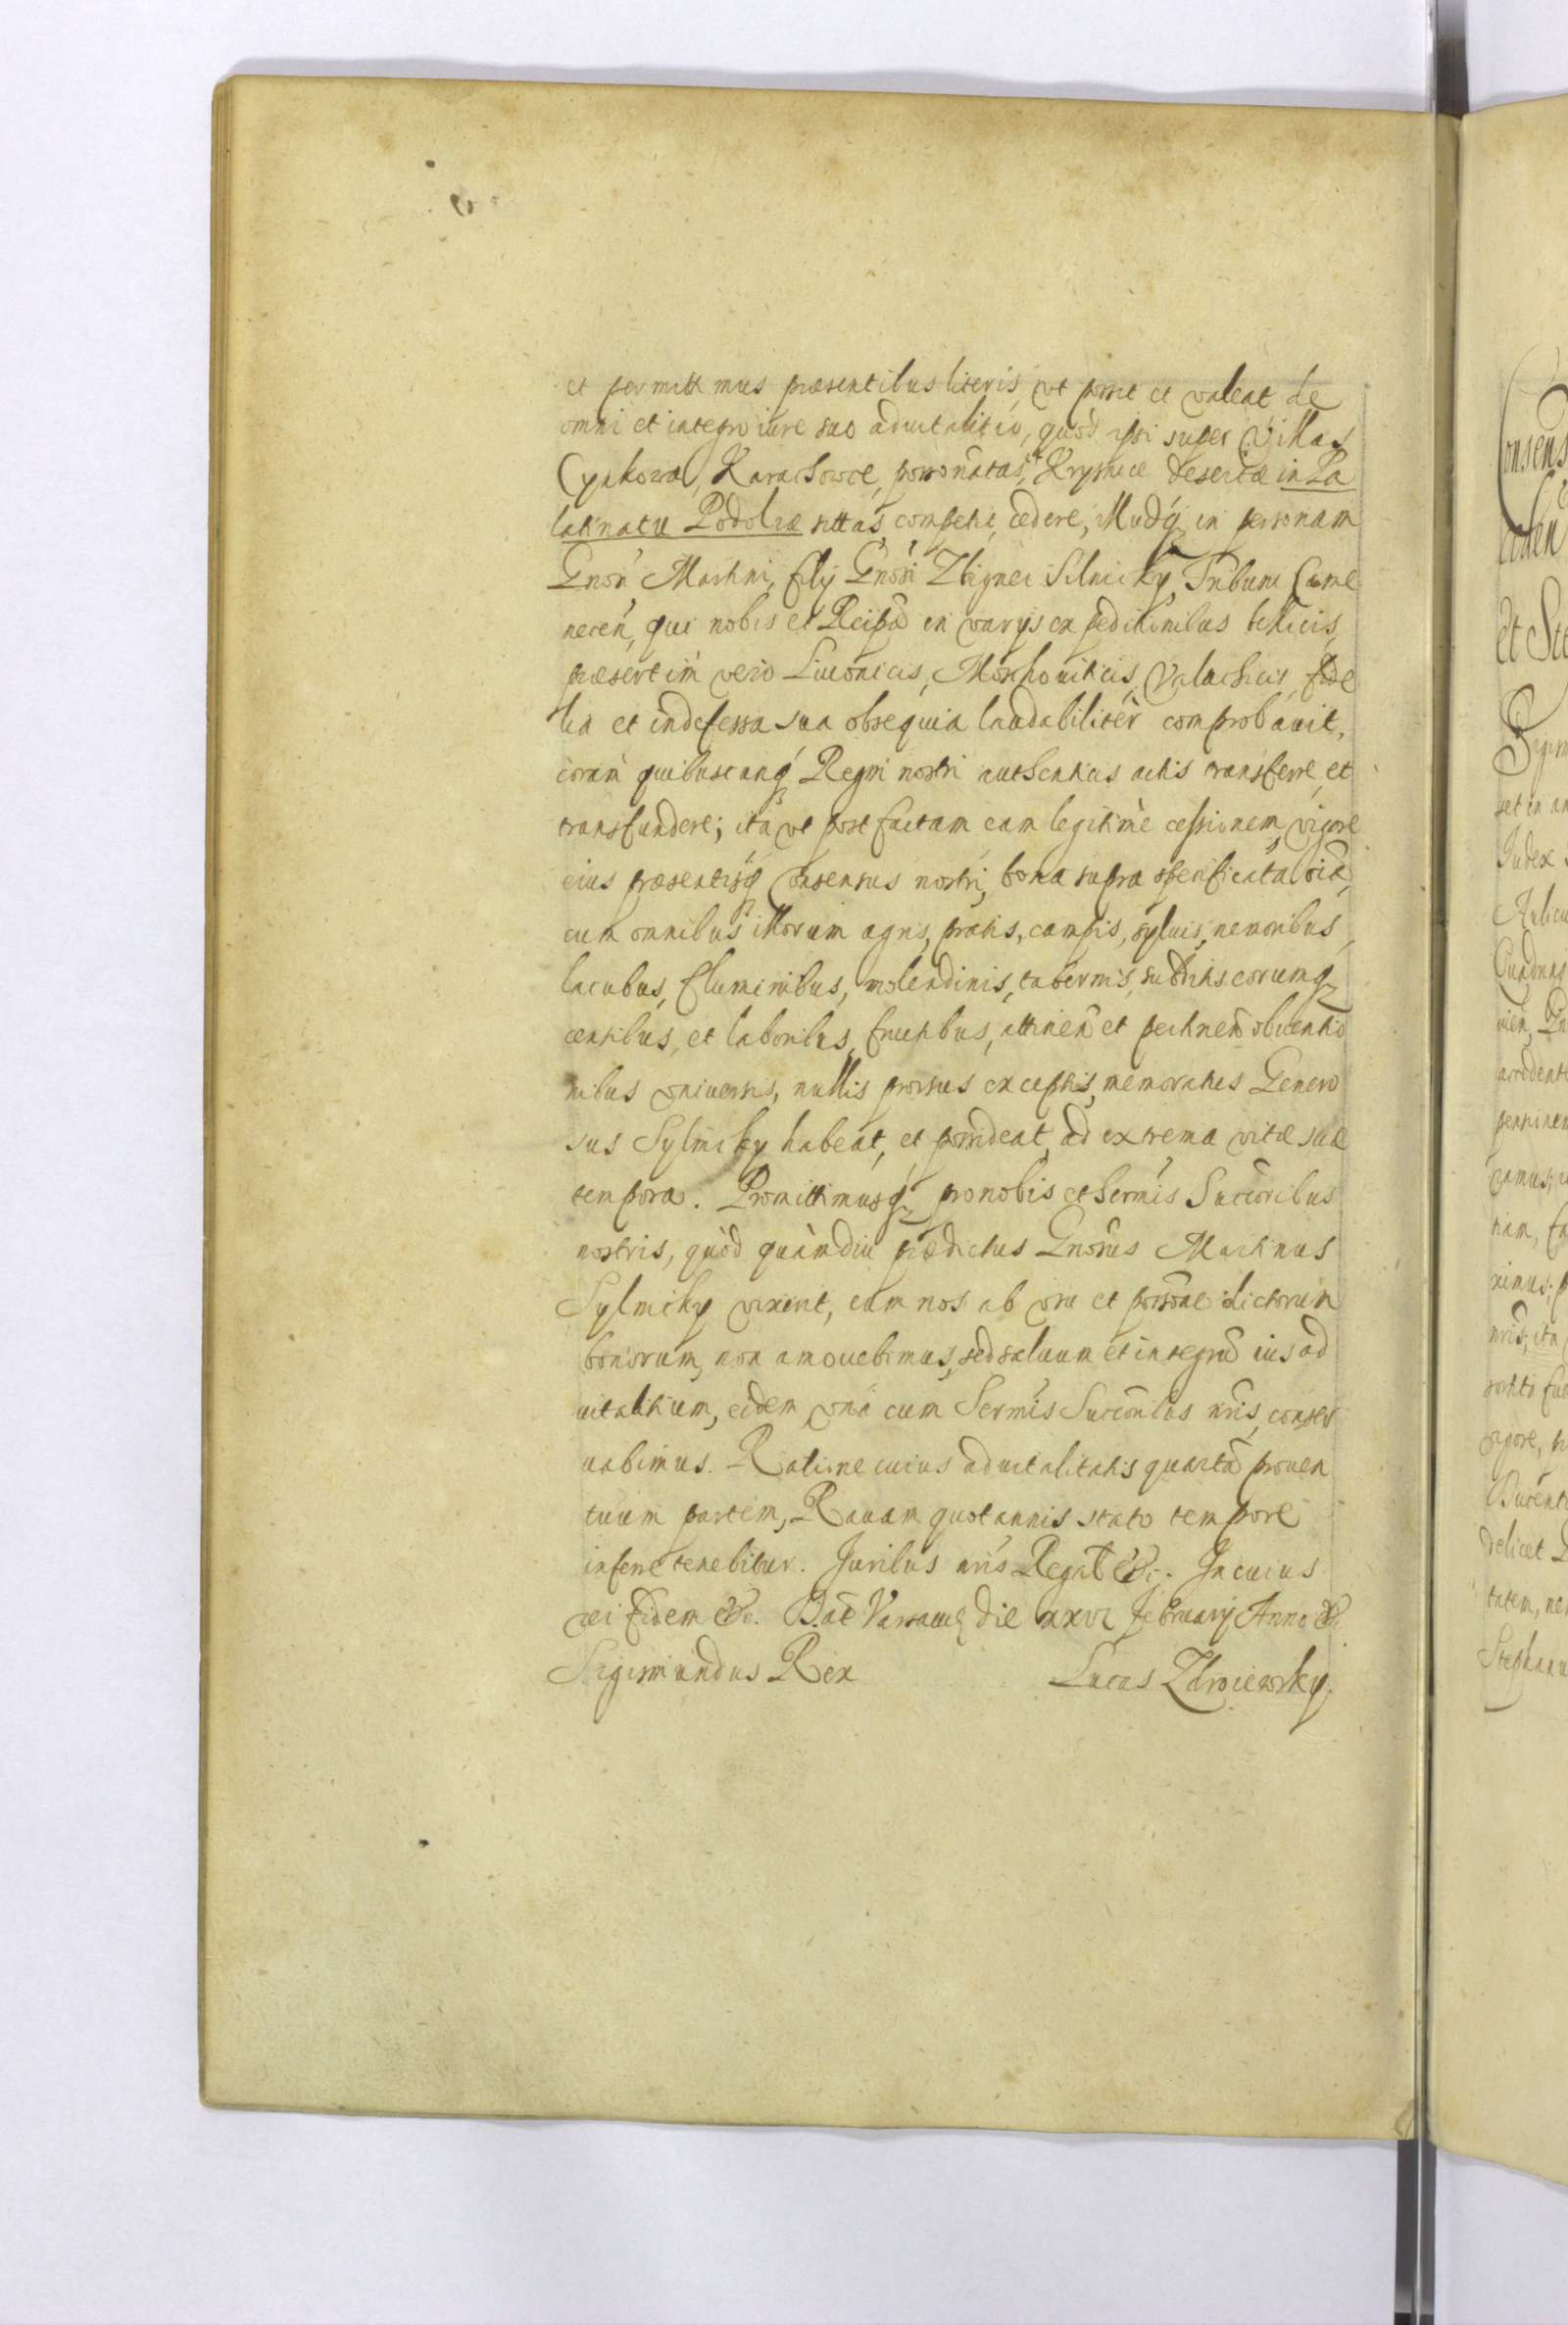 et permittimus præsentibus literis, vt possit et valeat de
omni et integro iure suo aduitalitio, quòd ipsi super Villas
Cynkowa, Karachowce, porronatas, Krysnice desertæ in Pa
latinatu Podoliæ sittas, competit, cedere, illudq́ in personam
Gnosi Martini, filij Gnosi Zbignei Silnicky, Tribuni Came
necen, qui nobis et Reipã in varijs expeditionibus bellicis,
præsertim verò Liuonicis, Moschouiticis, Valachicis, fide
lia et indefessa sua obsequia laudabilitèr comprobauit,
coram quibuscunq́ Regni nostri authenticis actis transferre, et
transfundere; ità vt post factam eam legitimè cessionem, vigore
eius præsentisq́ Consensus nostri, bona supra specificata oia,
cum omnibus illorum agris, pratis, campis, syluis, nemoribus,
lacubus, fluminibus, molendinis, tabernis, subditis eorumq́
censibus, et laboribus, fructibus, attinen et pertinen obuentio
nibus vniuersis, nullis prorsus exceptis, memoratus Genero
sus Sylnicky habeat, et possideat, ad extrema vitæ suæ
tempora. Promittimusq́ pro nobis et Sermis Succoribus
nostris, quòd quàmdiu prædictus Gnosus Martinus
Sylnicky vixerit, eum nos ab vsu et possone dictorum
bonorum, non amouebimus, sed saluum et integrũ ius ad
uitalitium, eidem vnà cum Sermis Succoribus nris, conser
uabimus. Ratione cuius aduitalitatis quartã prouen
tuum partem, Rauam quotannis stato tempore
inferre tenebitur. Juribus nris Regal &c. In cuius
rei fidem &c. Dat Varsauiæ die xxvi february Anno &c
Sigismundus Rex Lucas Zdroiewsky.